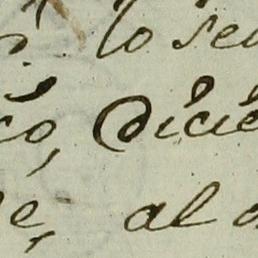 lo seu
co, Dicie
e, al a